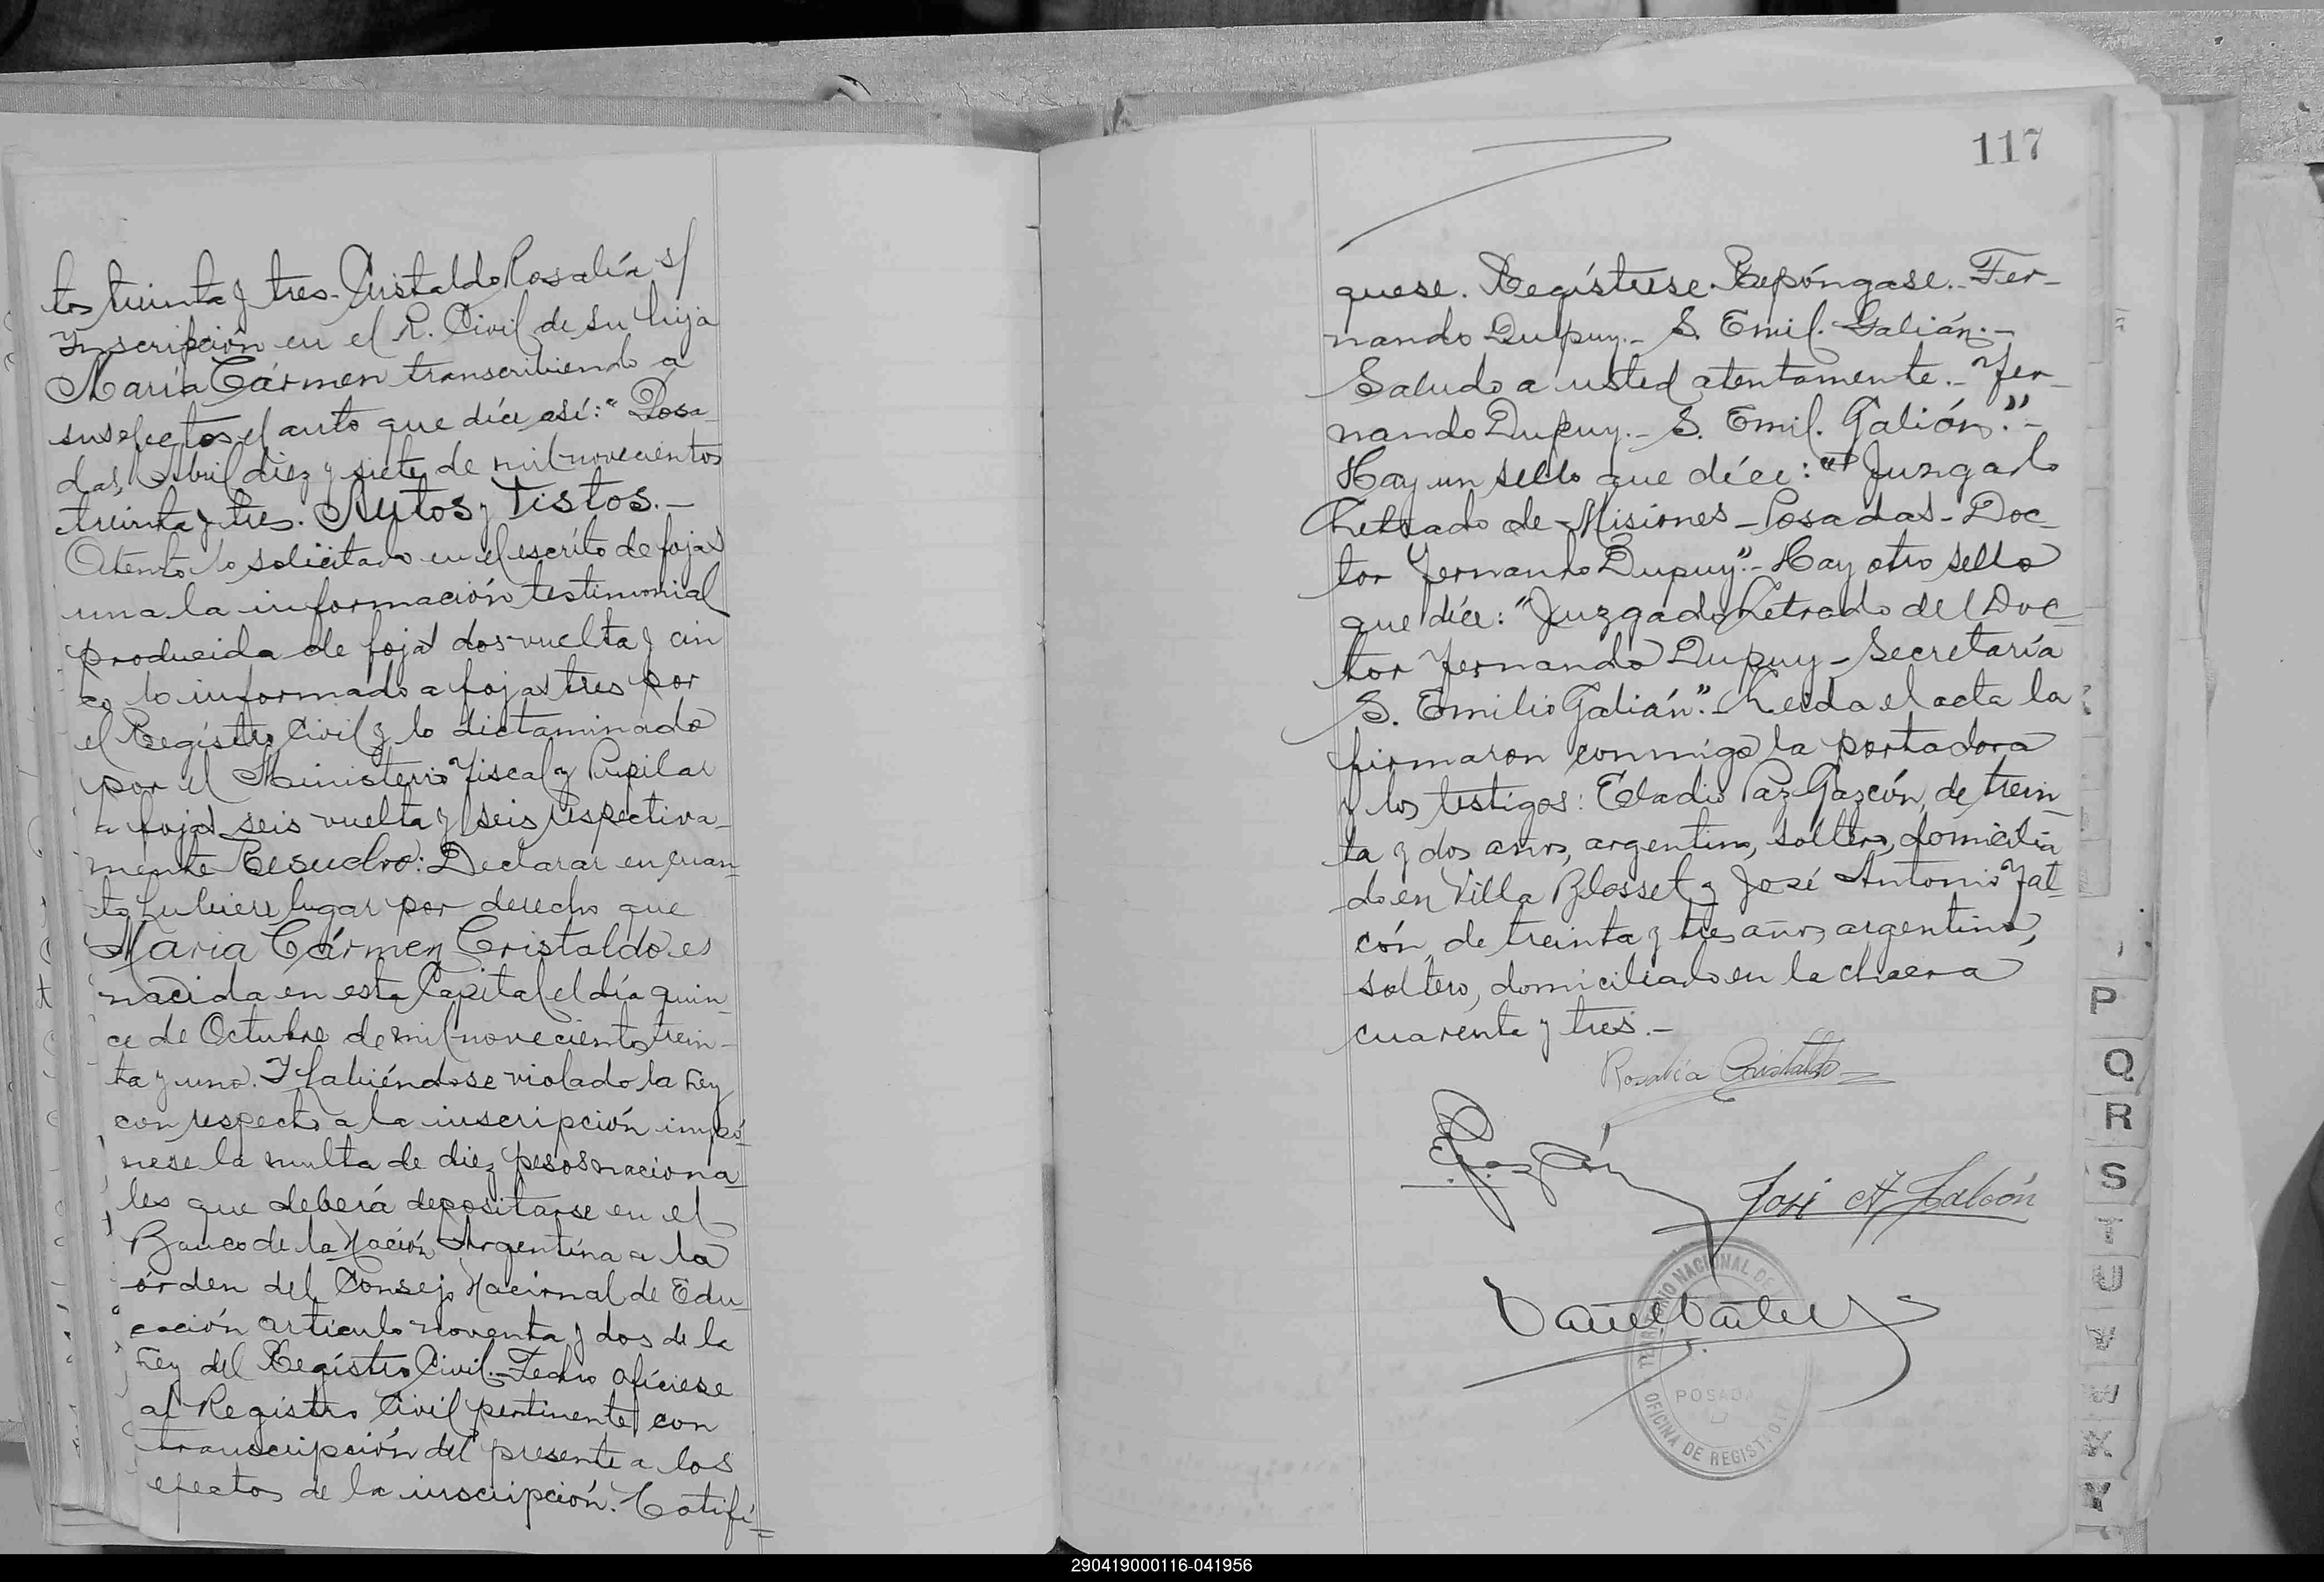 tos treinta y tres. Cristaldo Rosalía s/
Inscripción en el R. Civil de su hija
María Cármen transcribiendo a
sus efectos el auto que díce así: "Posa-
das, Abril diez y siete de mil novecientos
treinta y tres. Autos y Vistos.-
Atento lo solicitado en el escríto de fojas
una la información testimonial
producida de fojas dos vuelta y cin
co lo informado a fojas tres por
el Regístro Civil y lo dictaminado
por el Ministerio Fiscal y Pupilar
a fojas seis vuelta y seis respectiva-
mente Resuelvo: Declarar en cuan-
to hubiere lugar por derecho que
Maria Cármen Cristaldo es
nacida en esta Capital el día quin-
ce de Octubre de mil novecientos trein-
ta y uno. Y habiéndose violado la Ley
con respecto a la inscripción impó-
nese la multa de diez pesos naciona-
les que deberá depositarse en el
Banco de la Nación Argentína a la
órden del Consejo Nacional de Edu-
cación artículo noventa y dos de la
Ley del Regístro Civil.- Fecho ofíciese
al Registro Civil pertinente con
transcripción del presente a los
efectos de la inscripción. Notifí-
117
quese. Regístrese. Repóngase.- Fer-
nando Dupuy.- S. Emil. Galián.-
Saludo a usted atentamente.- Fer-
nando Dupuy.- S. Emil. Galián."-
Hay un sello que díce: "Juzgado
Letrado de Misiones - Posadas - Doc-
tor Fernando Dupuy".- Hay otro sello
que díce: "Juzgado Letrado del Doc-
tor Fernando Dupuy - Secretaría
S. Emilio Galián".- Leida el acta la
firmaron conmigo la portadora
y los testigos: Eladio Paz Gazcón, de trein
ta y dos años, argentino, soltero, domicilia
do en Villa Blosset y José Antonio Fal-
cón, de treinta y tres años, argentino,
soltero, domiciliado en la chacra
cuarenta y tres.-
Rosalía Cristaldo
José A. Falcón
TERRITORIO NACIONAL DE
POSADAS
OFICINA DE REGISTRO
P
Q
R
S
T
U
V
W
X
Y
290419000116-041956